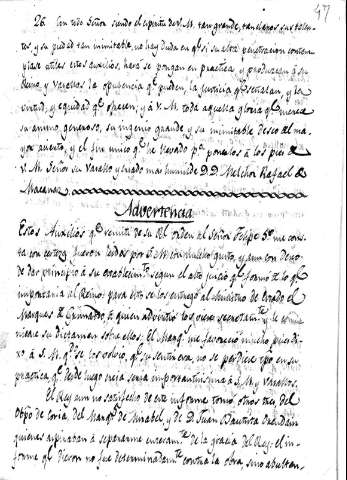 47
26. Con todo Señor siendo el espiritu de V. M. tan grande, tan claros sus talen-
tos, y su piedad tan inimitable, no hay duda en qe si su alta penetracion contem-
plase utiles estos auxilios, hará se pongan en practica y produzcan á su
Reino, y Vasallos la opulencia qe piden, la Justicia qe señalan, y la
virtud, y equidad qe ofrecen; y á V. M. toda aquella gloria qe merece
su animo generoso, su ingenio grande y su inimitable deseo al ma-
yor acierto, y el fin unico qe ha llevado pa ponerlos á los pies de
V. M. Señor su Vasallo y criado mas humilde D. Melchor Rafael de
Macanaz
Advertencia
Estos Auxilios qe remiti de su Rl orden al Señor Felipe 5o me cons-
ta con certeza fueron leidos por S. M. con mucho gusto, y aun con deseo
de dar principio á su establecimto segun el alto juicio qe formó de lo qe
importaria al Reino: para esto se los entregó al Ministro de Estado el
Marques de Grimaldo, á quien advirtió los viese secretamte y le comu-
nicase su dictamen sobre ellos: El Marqs me favoreció mucho, pues di-
xo á S. M. qe se los volvió, qe su sentir era, no se perdiese tpo en su
practica, qe desde luego seria importantisima á S. M. y Vasallos.
El Rey aun no satisfecho de este informe tomó otros tres, del
Obpo de Coria, del Marqs de Mirabel, y de D. Juan Bautista
quienes aspiraban á separarme enteramte de la gracia del Rey: el in-
forme qe dieron no fue determinadamte contra la obra, sino